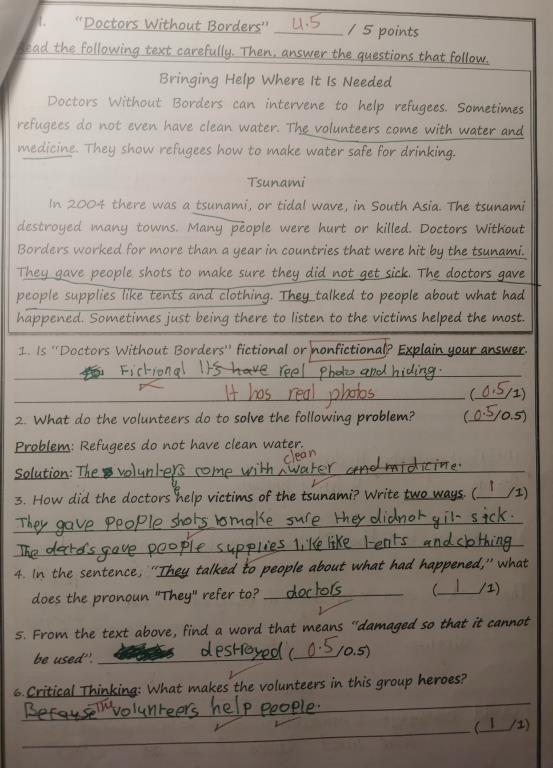 1. "Doctors Without Borders" 4.5 / 5 points
Read the following text carefully. Then, answer the questions that follow.
Bringing Help Where It Is Needed
Doctors Without Borders can intervene to help refugees. Sometimes
refugees do not even have clean water. The volunteers come with water and
medicine. They show refugees how to make water safe for drinking.
Tsunami
In 2004 there was a tsunami, or tidal wave, in South Asia. The tsunami
destroyed many towns. Many people were hurt or killed. Doctors Without
Borders worked for more than a year in countries that were hit by the tsunami.
They gave people shots to make sure they did not get sick. The doctors gave
people supplies like tents and clothing. They talked to people about what had
happened. Sometimes just being there to listen to the victims helped the most.
1. Is "Doctors Without Borders" fictional or nonfictional? Explain your answer.
Fictional It's have reel photo and hiding.
It has real photos (0.5/1)
2. What do the volunteers do to solve the following problem? (0.5/0.5)
Problem: Refugees do not have clean water.
clean
Solution: The volunters come with water and midicine.
e
3. How did the doctors help victims of the tsunami? Write two ways. (1/1)
They gave people shots to make sure they did not git sick.
The doctors gave people supplies like like tents and clothing
4. In the sentence, "They talked to people about what had happened," what
does the pronoun "They" refer to? doctors (1/1)
5. From the text above, find a word that means "damaged so that it cannot
be used". destroyed (0.5/0.5)
6. Critical Thinking: What makes the volunteers in this group heroes?
Because The volunteers help people.
(1/1)